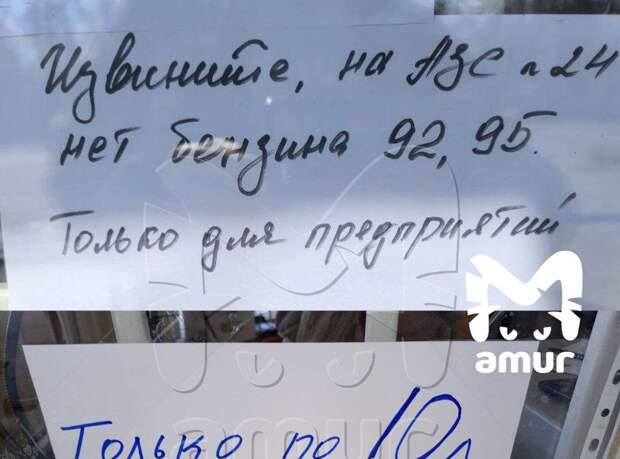 Извините, на АЗС №24
нет бензина 92, 95.
Только для предприятий
amur
Только по 10л
amur